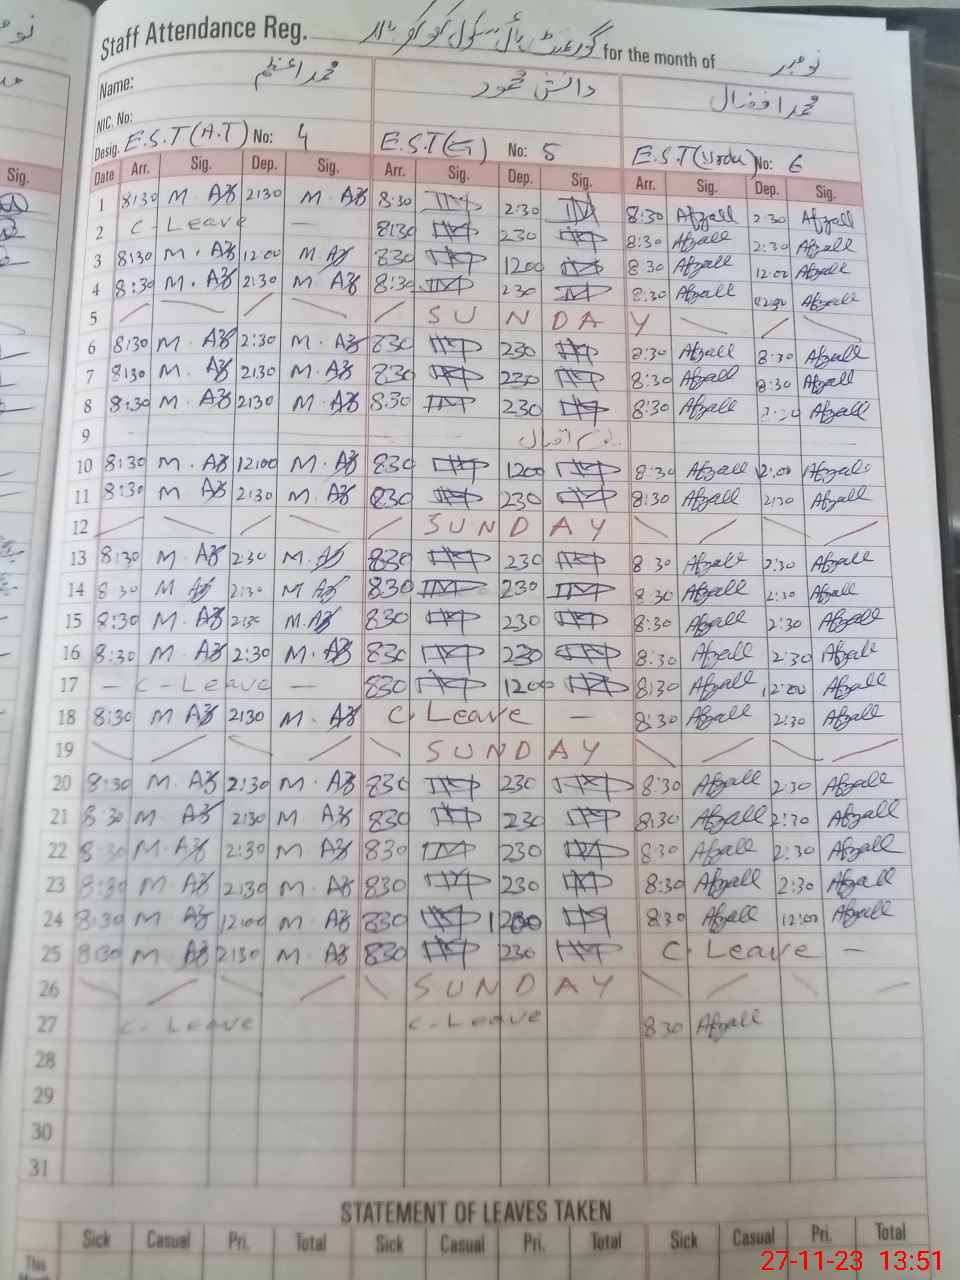 Staff Attendance Reg. گورنمنٹ ہائی سکول for the month of نومبر
Name: محمد اعظم دانش محمود محمد افضال
NIC. No:
Desig. E.S.T (A.T) No: 4 E.S.T( No: 5 E.S.T(Urdu) No: 6
Sig. Date Arr. Sig. Dep. Sig. Arr. Sig. Dep. Sig. Arr. Sig. Dep. Sig.
1 8:30 M. Az 2:30 M. Az 8:30 2:30 8:30 Afzall 2:30 Afzall
2 C-Leave — 8:30 230 8:30 Afzall 2:30 Afzall
3 8:30 M. Az 12:00 M. Az 830 1200 8:30 Afzall 12:00 Afzall
4 8:30 M. Az 2:30 M. Az 8:30 230 8:30 Afzall Afzall
5 SUNDAY
6 8:30 M. Az 2:30 M. Az 830 230 8:30 Afzall 8:30 Afzall
7 8:30 M. Az 2:30 M. Az 830 230 8:30 Afzall 8:30 Afzall
8 8:30 M. Az 2:30 M. Az 8.30 230 8:30 Afzall Afzall
9 یوم اقبال
10 8:30 M. Az 12:00 M. Az 830 1200 8:30 Afzall 12:00 Afzall
11 8:30 M Az 2:30 M. Az 830 230 8:30 Afzall 2:30 Afzall
12 SUNDAY
13 8:30 M. Az 2:30 M. Az 830 230 8:30 Afzall 2:30 Afzall
14 8:30 M Az 2:30 M Az 830 230 8:30 Afzall 2:30 Afzall
15 8:30 M. Az 2:30 M. Az 830 230 8:30 Afzall 2:30 Afzall
16 8:30 M Az 2:30 M. Az 830 230 8:30 Afzall 2:30 Afzall
17 — C-Leave — 830 1200 8:30 Afzall 12:00 Afzall
18 8:30 M Az 2:30 M. Az C. Leave — 8:30 Afzall 2:30 Afzall
19 SUNDAY
20 8:30 M. Az 2:30 M. Az 830 230 8:30 Afzall 2:30 Afzall
21 8:30 M Az 2:30 M Az 830 230 8:30 Afzall 2:30 Afzall
22 8:30 M. Az 2:30 M. Az 830 230 8:30 Afzall 2:30 Afzall
23 8:30 M Az 2:30 M. Az 830 230 8:30 Afzall 2:30 Afzall
24 8:30 M Az 12:00 M. Az 830 1200 8:30 Afzall 12:00 Afzall
25 8:30 M Az 2:30 M. Az 830 230 C. Leave —
26 SUNDAY
27 C-Leave C-Leave 8:30 Afzall
28
29
30
31
STATEMENT OF LEAVES TAKEN
Sick Casual Pri. Total Sick Casual Pri. Total Sick Casual Pri. Total
This
27-11-23 13:51